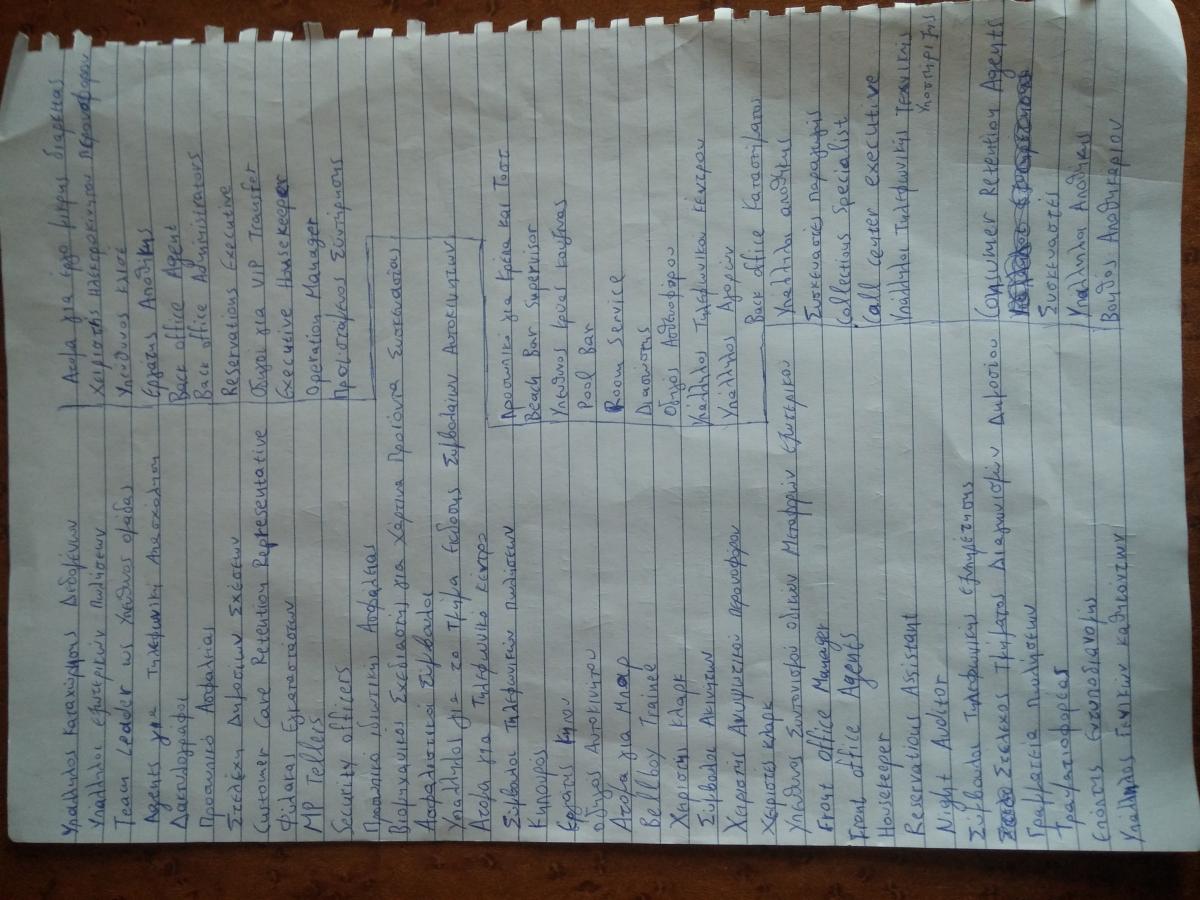 Υπάλληλος καταχώρησης Δεδομένων
Υπάλληλοι εξωτερικών Πωλήσεων
Team Leader ως Υπεύθυνος ομάδας
Agents για Τηλεφωνική Απασχόληση
Δακτυλογράφοι
Προσωπικό Ασφαλείας
Στελέχη Δημοσίων Σχέσεων
Customer Care Retention Representative
Φύλακας Εγκαταστάσεων
MP Tellers
Security officers
Προσωπικό ιδιωτικής Ασφάλειας
Βιομηχανικός Σχεδιαστής για Χάρτινα Προϊόντα Συσκευασίας
Ασφαλιστικοί Σύμβουλοι
Υπάλληλος για το Τμήμα Εκδοσης Συμβολαίων Αυτοκινήτων
Ατομα για Τηλεφωνικό κέντρο
Σύμβουλοι Τηλεφωνικών Πωλήσεων
Κηπουρός
Εργάτης Κήπου
οδηγός Αυτοκινήτου
Ατομα για Μπαρ
Bellboy Trainee
Χειριστή κλαρκ
Σύμβουλοι Ακινήτων
Χειριστής Ανυψωτικού περονοφόρου
Χειριστές κλαρκ
Υπεύθυνος Συντονισμού οδικών Μεταφορών εξωτερικού
Front office Manager
Front office Agents
Housekeeper
Reservations Assistant
Night Auditor
Σύμβουλοι Τηλεφωνικής εξυπηρέτησης
Στέλεχος Τμήματος Διαγωνισμών Δημοσίου
Γραμματεία Πωλήσεων
Τραυματιοφορέας
Επόπτης Εντυποδιανομής
Υπάλληλος Γενικών καθηκόντων
Ατομα για έργο μικρής διαρκείας
Χειριστής Ηλεκτροκίνητου περονοφόρου
Υπεύθυνος κλισέ
Εργάτης Αποθήκης
Back office Agent
Back office Administrators
Reservations Executive
Οδηγοί για VIP Transfer
Executive Housekeeper
Operation Manager
Προϊστάμενος Συντήρησης
Προσωπικό για Κρέπα και Τοστ
Beach Bar Supervisor
Υπεύθυνος κρύας κουζίνας
Pool Bar
Room Service
Διασώστης
Οδηγός Ασθενοφόρου
Υπάλληλος Τηλεφωνικού κέντρου
Υπάλληλος Αγορών
Back office Καταστήματος
Υπάλληλοι αποθήκης
Συσκευαστές παραγωγής
Collections Specialist
Call center executive
Υπάλληλοι Τηλεφωνικής Τεχνικής
Υποστήριξης
Consumer Retention Agents
Συσκευαστές
Υπάλληλοι Αποθήκης
Βοηθός Αποθηκαρίου